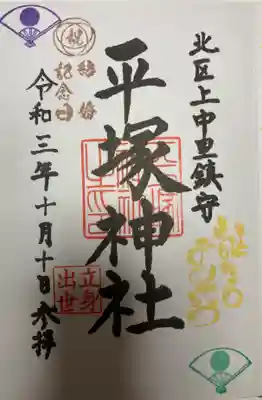 北区上中里鎮守
平塚神社
立身
出世
祝
結婚
記念日
令和三年十月十日参拝